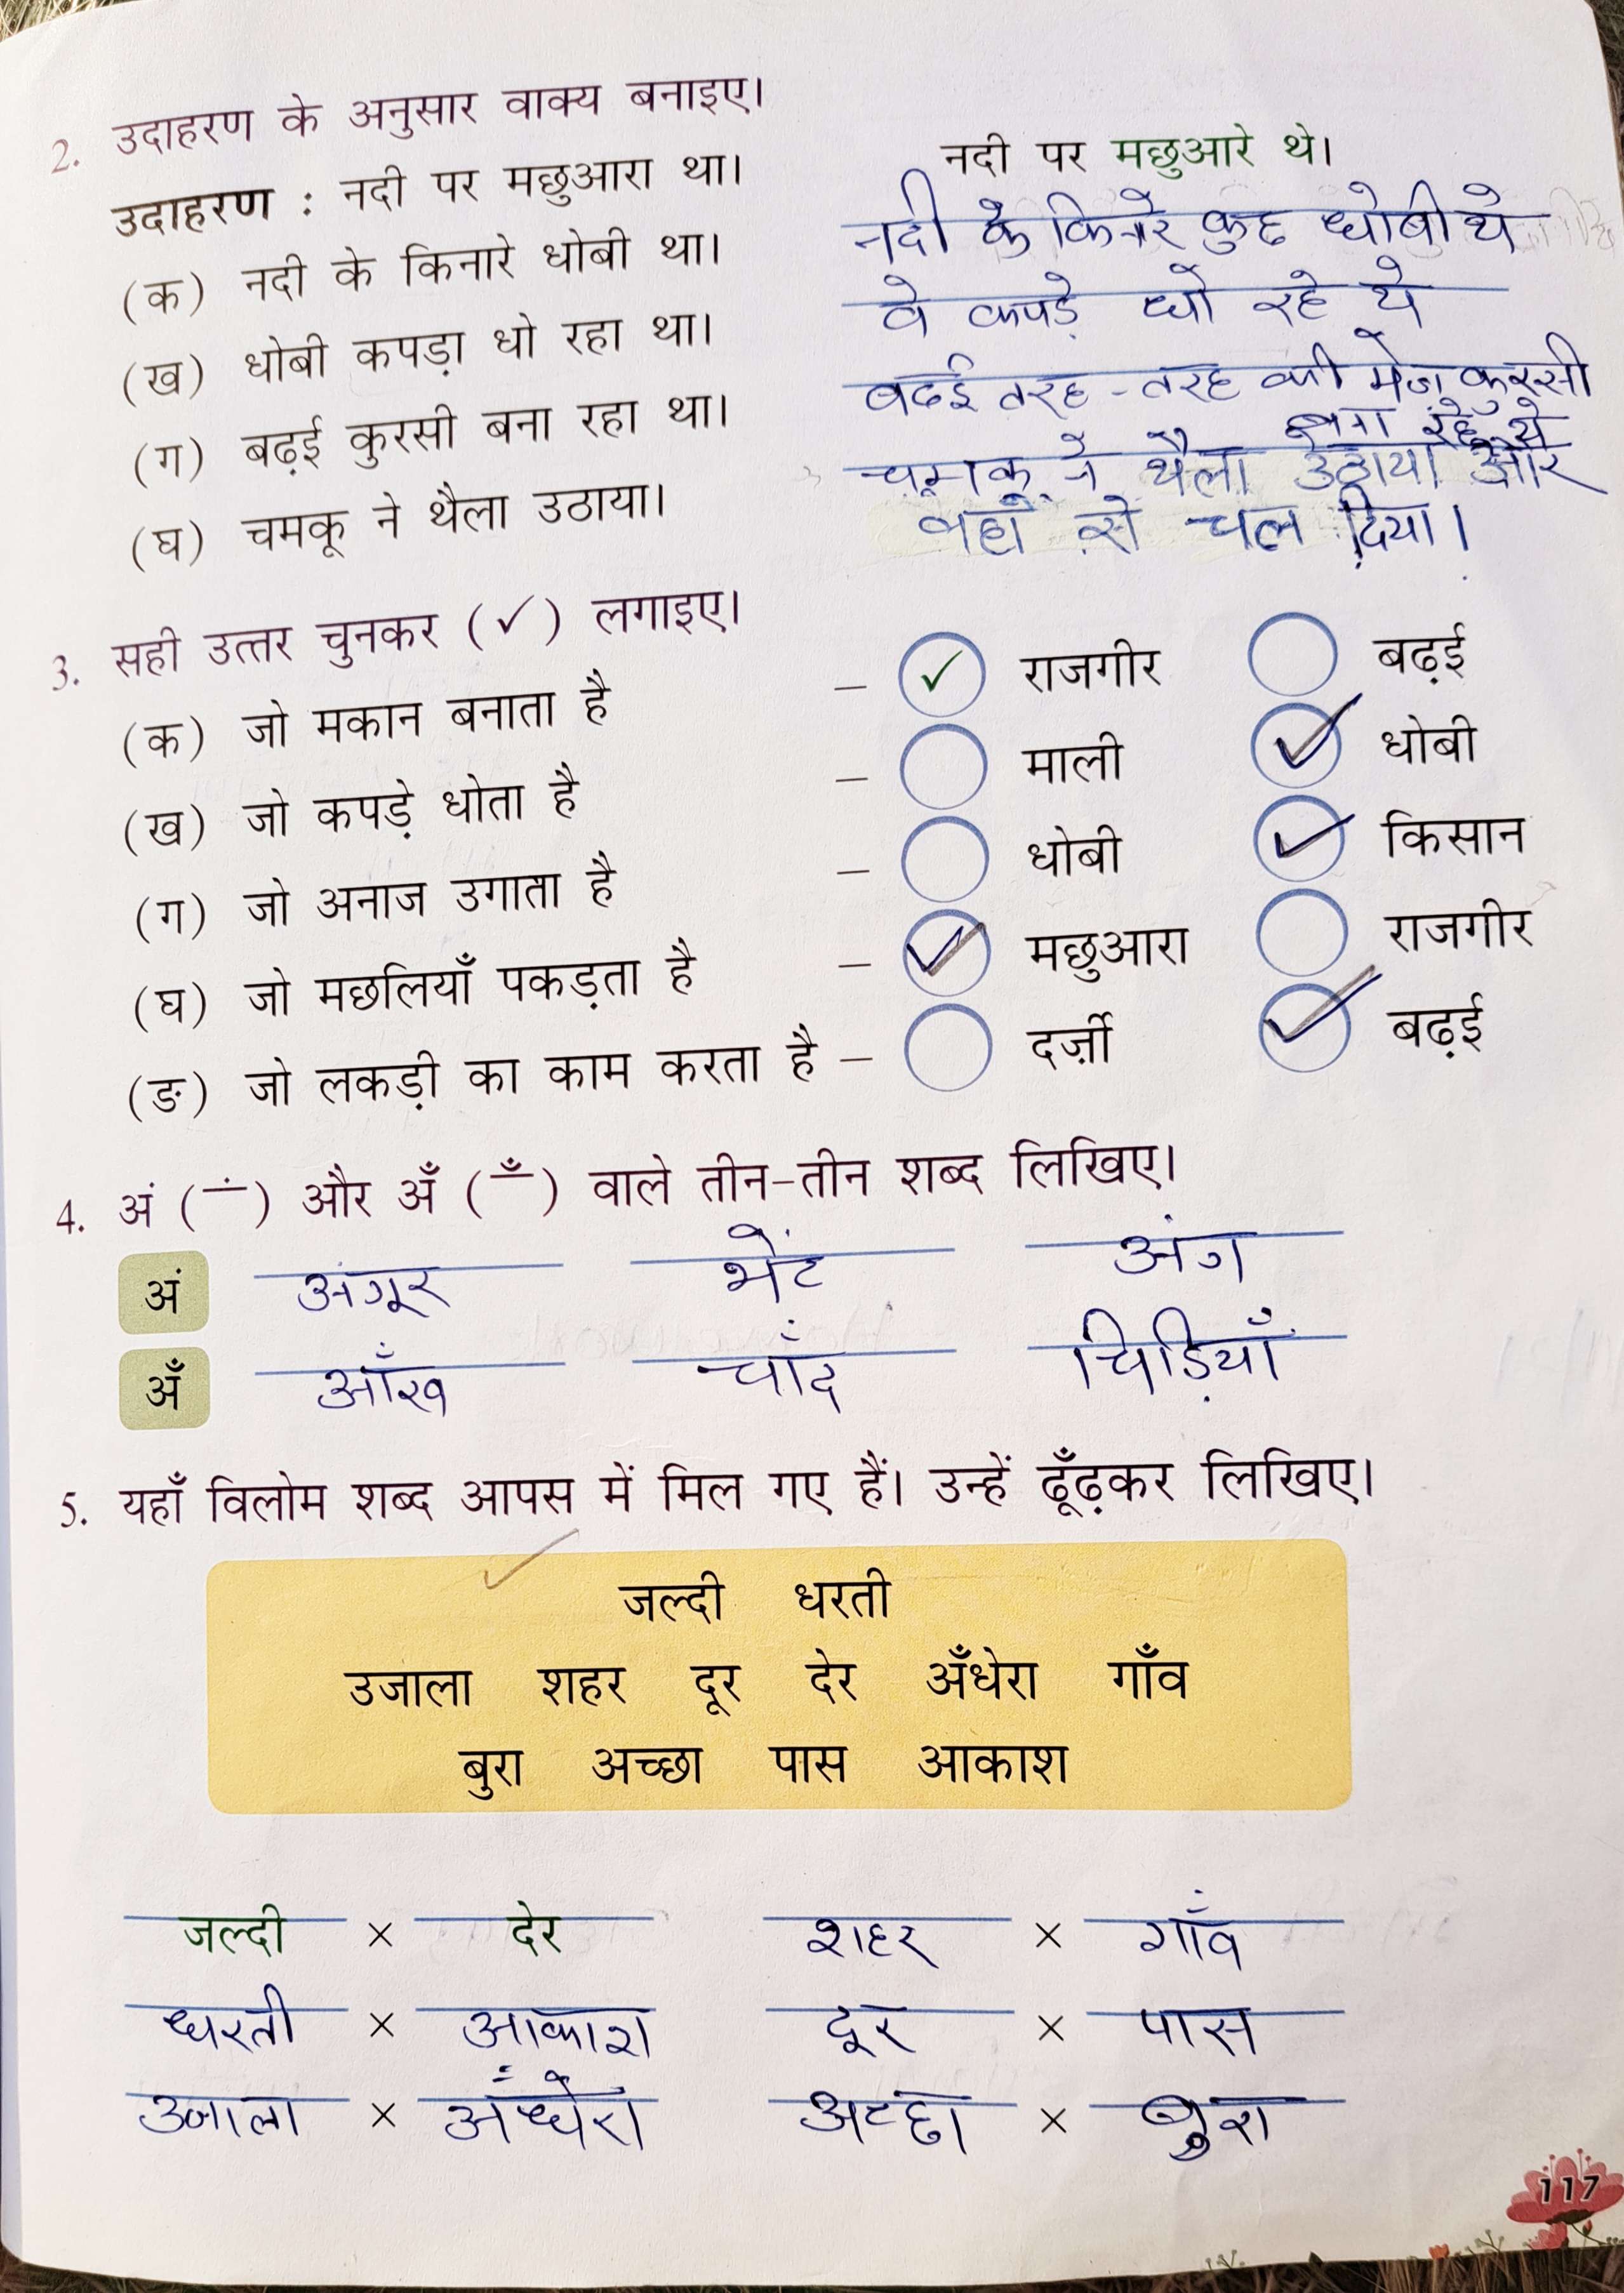 2. उदाहरण के अनुसार वाक्य बनाइए।
उदाहरण : नदी पर मछुआरा था। नदी पर मछुआरे थे।
(क) नदी के किनारे धोबी था। नदी के किनरे कुछ धोबी थे
(ख) धोबी कपड़ा धो रहा था। वे कपड़े धो रहे थे
(ग) बढ़ई कुरसी बना रहा था। बढई तरह-तरह की मेज कुरसी
बना रहे थे
(घ) चमकू ने थैला उठाया। चमकू ने थैला उठाया और
वहाँ से चल दिया।
3. सही उत्तर चुनकर (✓) लगाइए।
(क) जो मकान बनाता है – ✓ राजगीर बढ़ई
(ख) जो कपड़े धोता है – माली ✓ धोबी
(ग) जो अनाज उगाता है – धोबी ✓ किसान
(घ) जो मछलियाँ पकड़ता है – ✓ मछुआरा राजगीर
(ङ) जो लकड़ी का काम करता है – दर्ज़ी ✓ बढ़ई
4. अं (ं) और अँ (ँ) वाले तीन-तीन शब्द लिखिए।
अं अंगूर भेंट अंग
अँ आँख चाँद चिड़ियाँ
5. यहाँ विलोम शब्द आपस में मिल गए हैं। उन्हें ढूँढ़कर लिखिए।
जल्दी धरती
उजाला शहर दूर देर अँधेरा गाँव
बुरा अच्छा पास आकाश
जल्दी × देर शहर × गाँव
धरती × आकाश दूर × पास
उजाला × अँधेरा अच्छा × बुरा
117